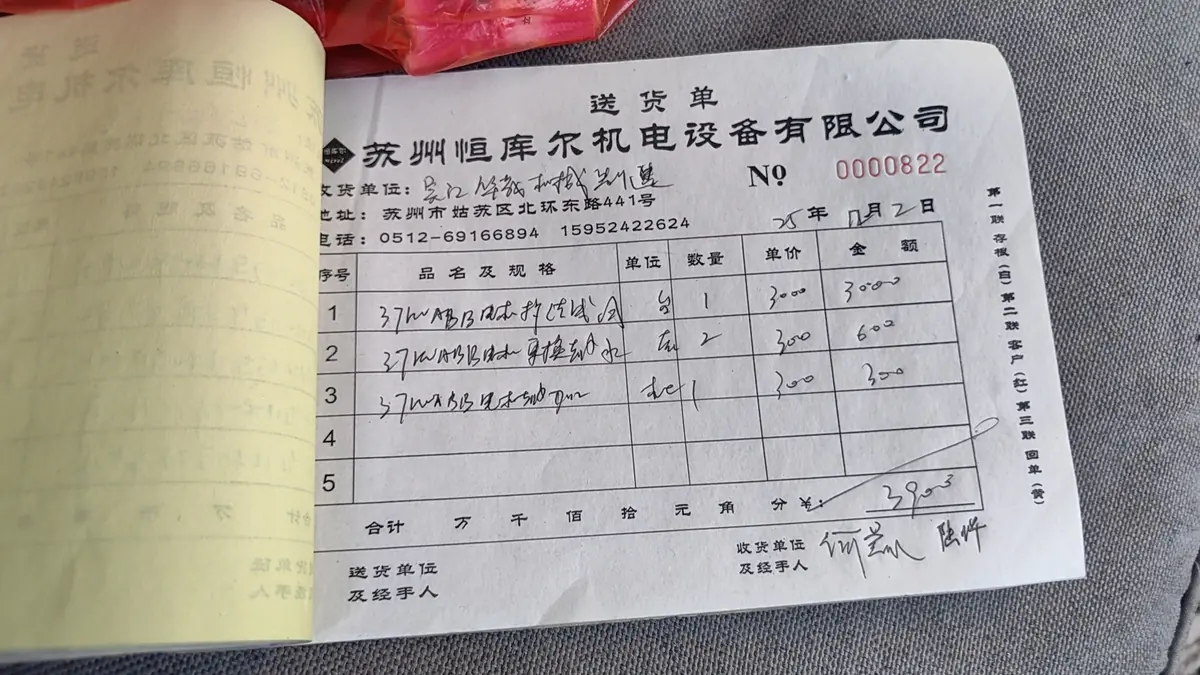 送货单
苏州恒库尔机电设备有限公司
恒库尔
收货单位：吴江 机械制造
№ 0000822
地址：苏州市姑苏区北环东路441号
电话：0512-69166894 15952422624
25年 月2日
序号 品名及规格 单位 数量 单价 金额
1 37kwABB电机 台 1 3000 3000
2 37kwABB电机更换轴承 2 300 600
3 37kwABB电机轴加工 1 300 300
4
5
合计 万 仟 佰 拾 元 角 分 ¥: 3900
送货单位
及经手人
收货单位
及经手人
第一联 存根（白）第二联 客户（红）第三联 回单（黄）